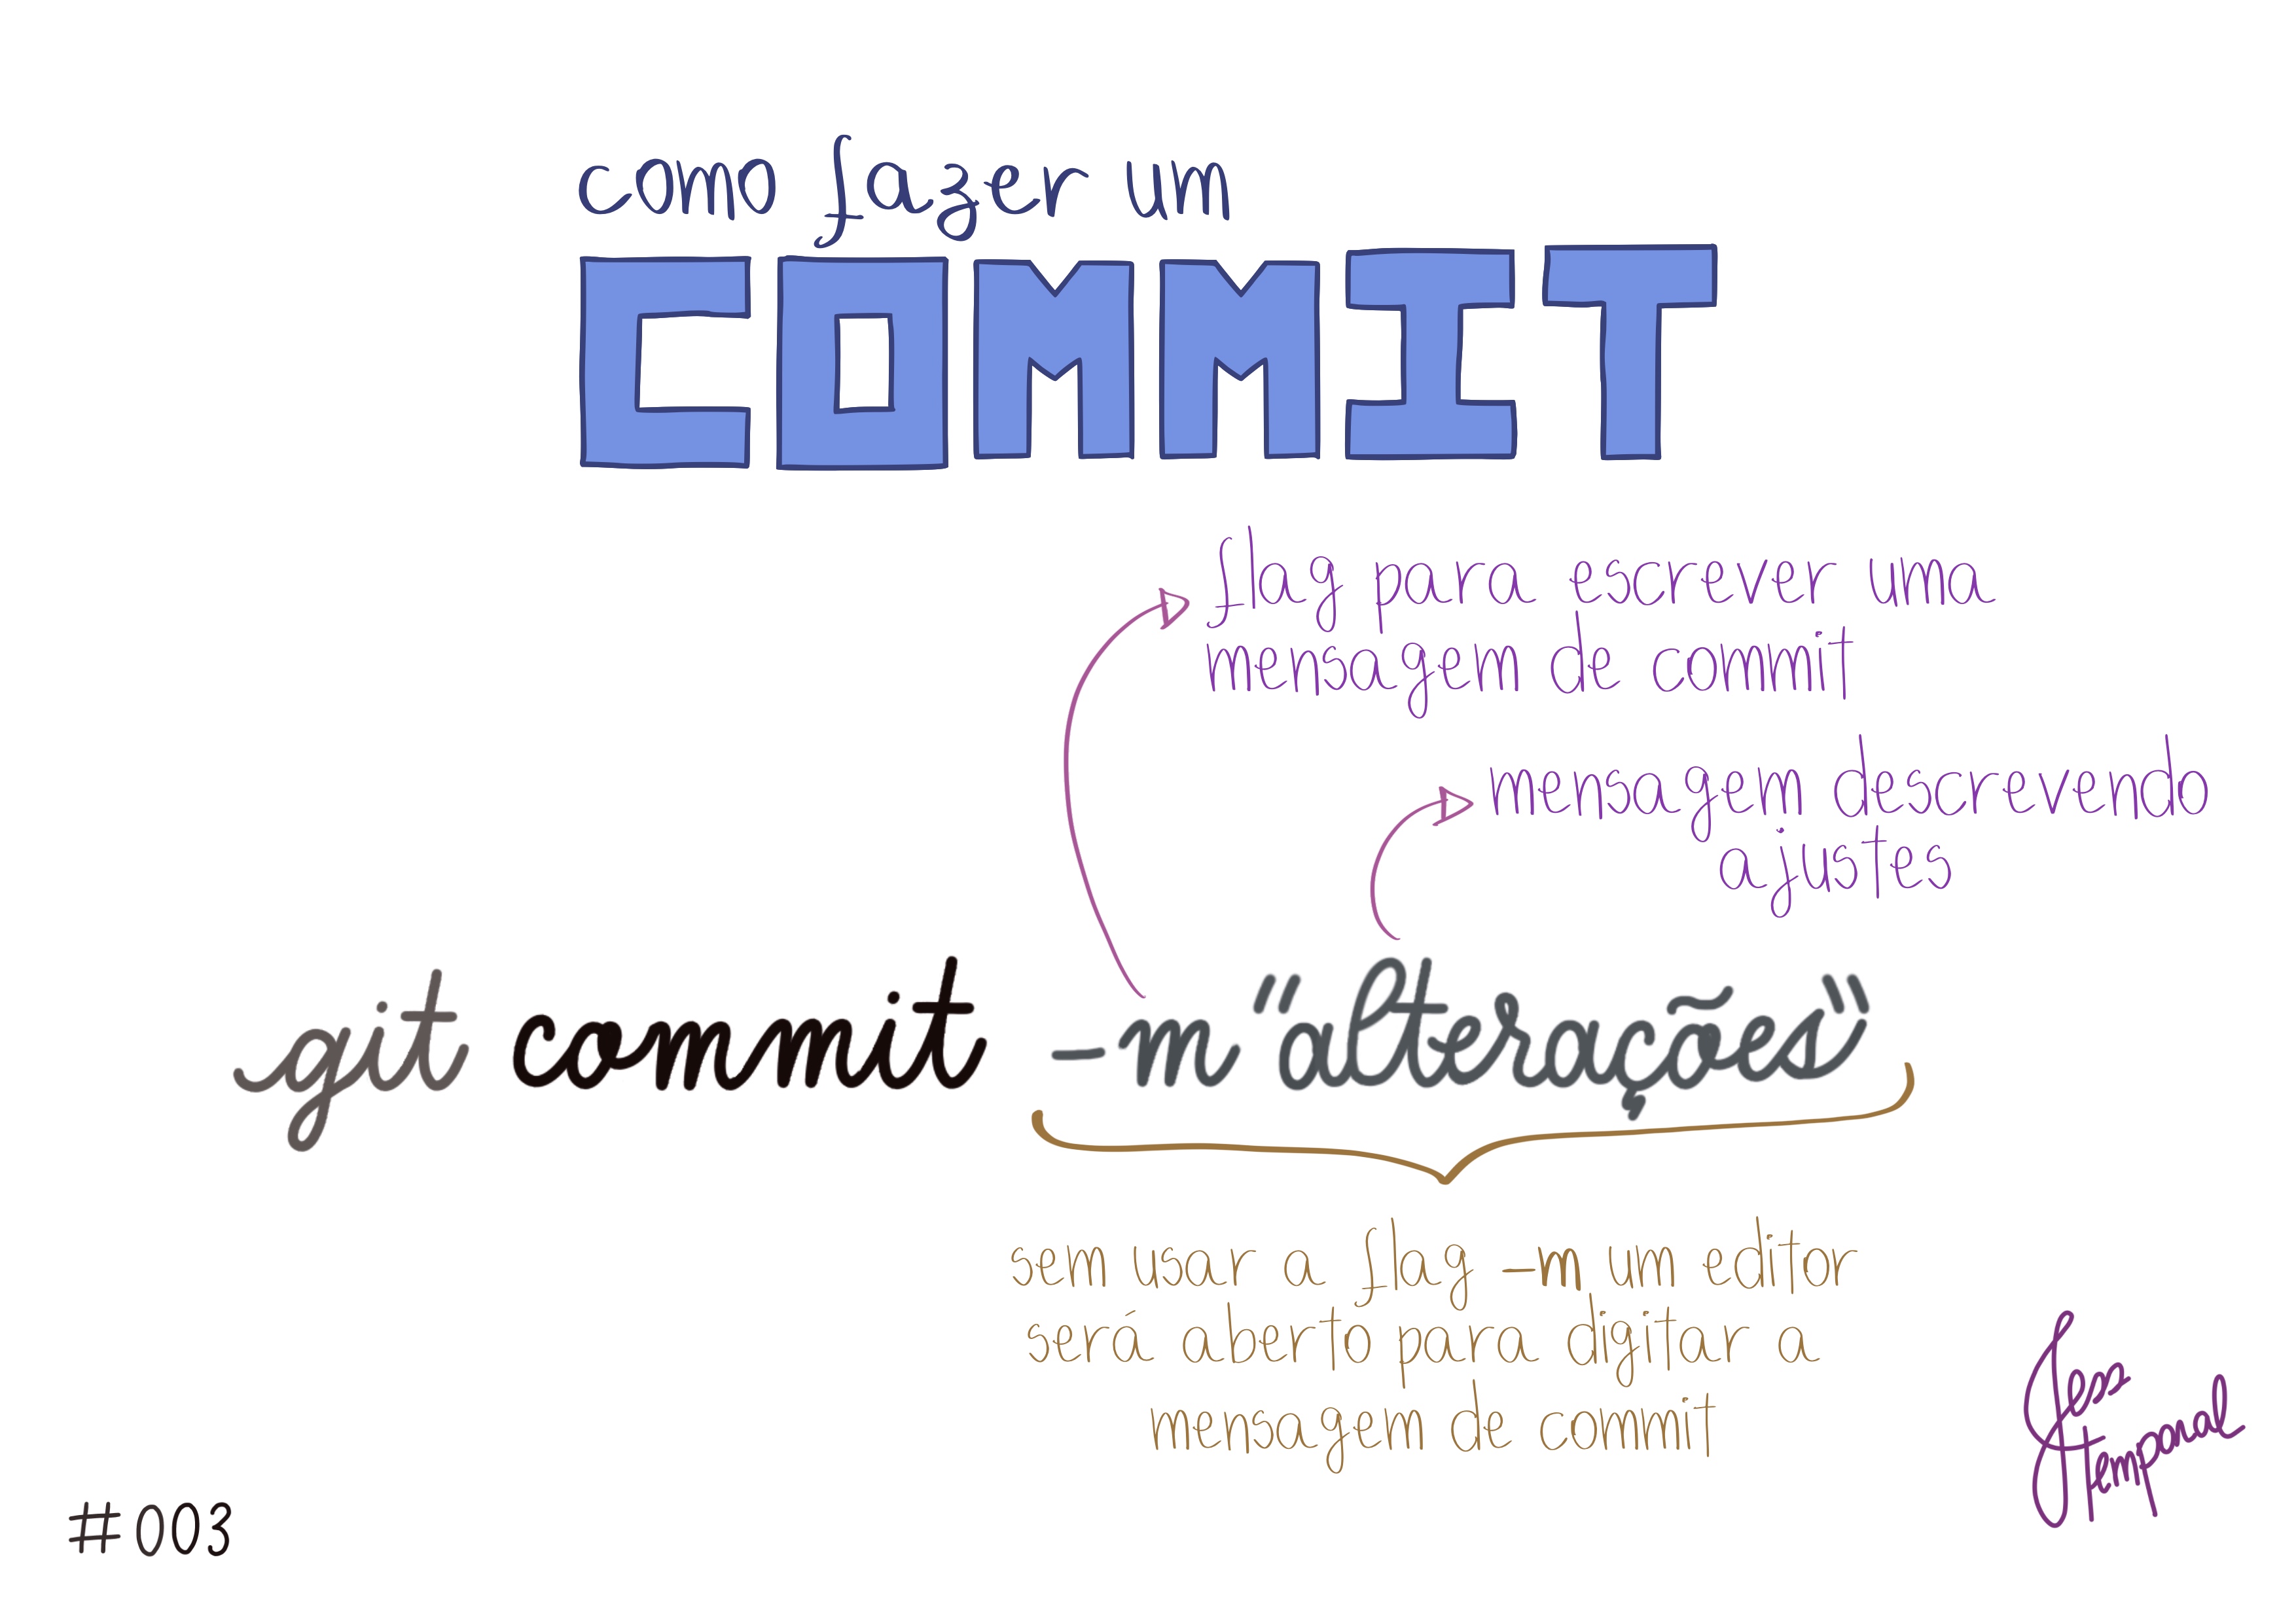 como fazer um
COMMIT
flag para escrever uma
mensagem de commit
mensagem descrevendo
ajustes
git commit -m "alterações"
sem usar a flag -m um editor
será aberto para digitar a
mensagem de commit
Jess
Temporal
#003